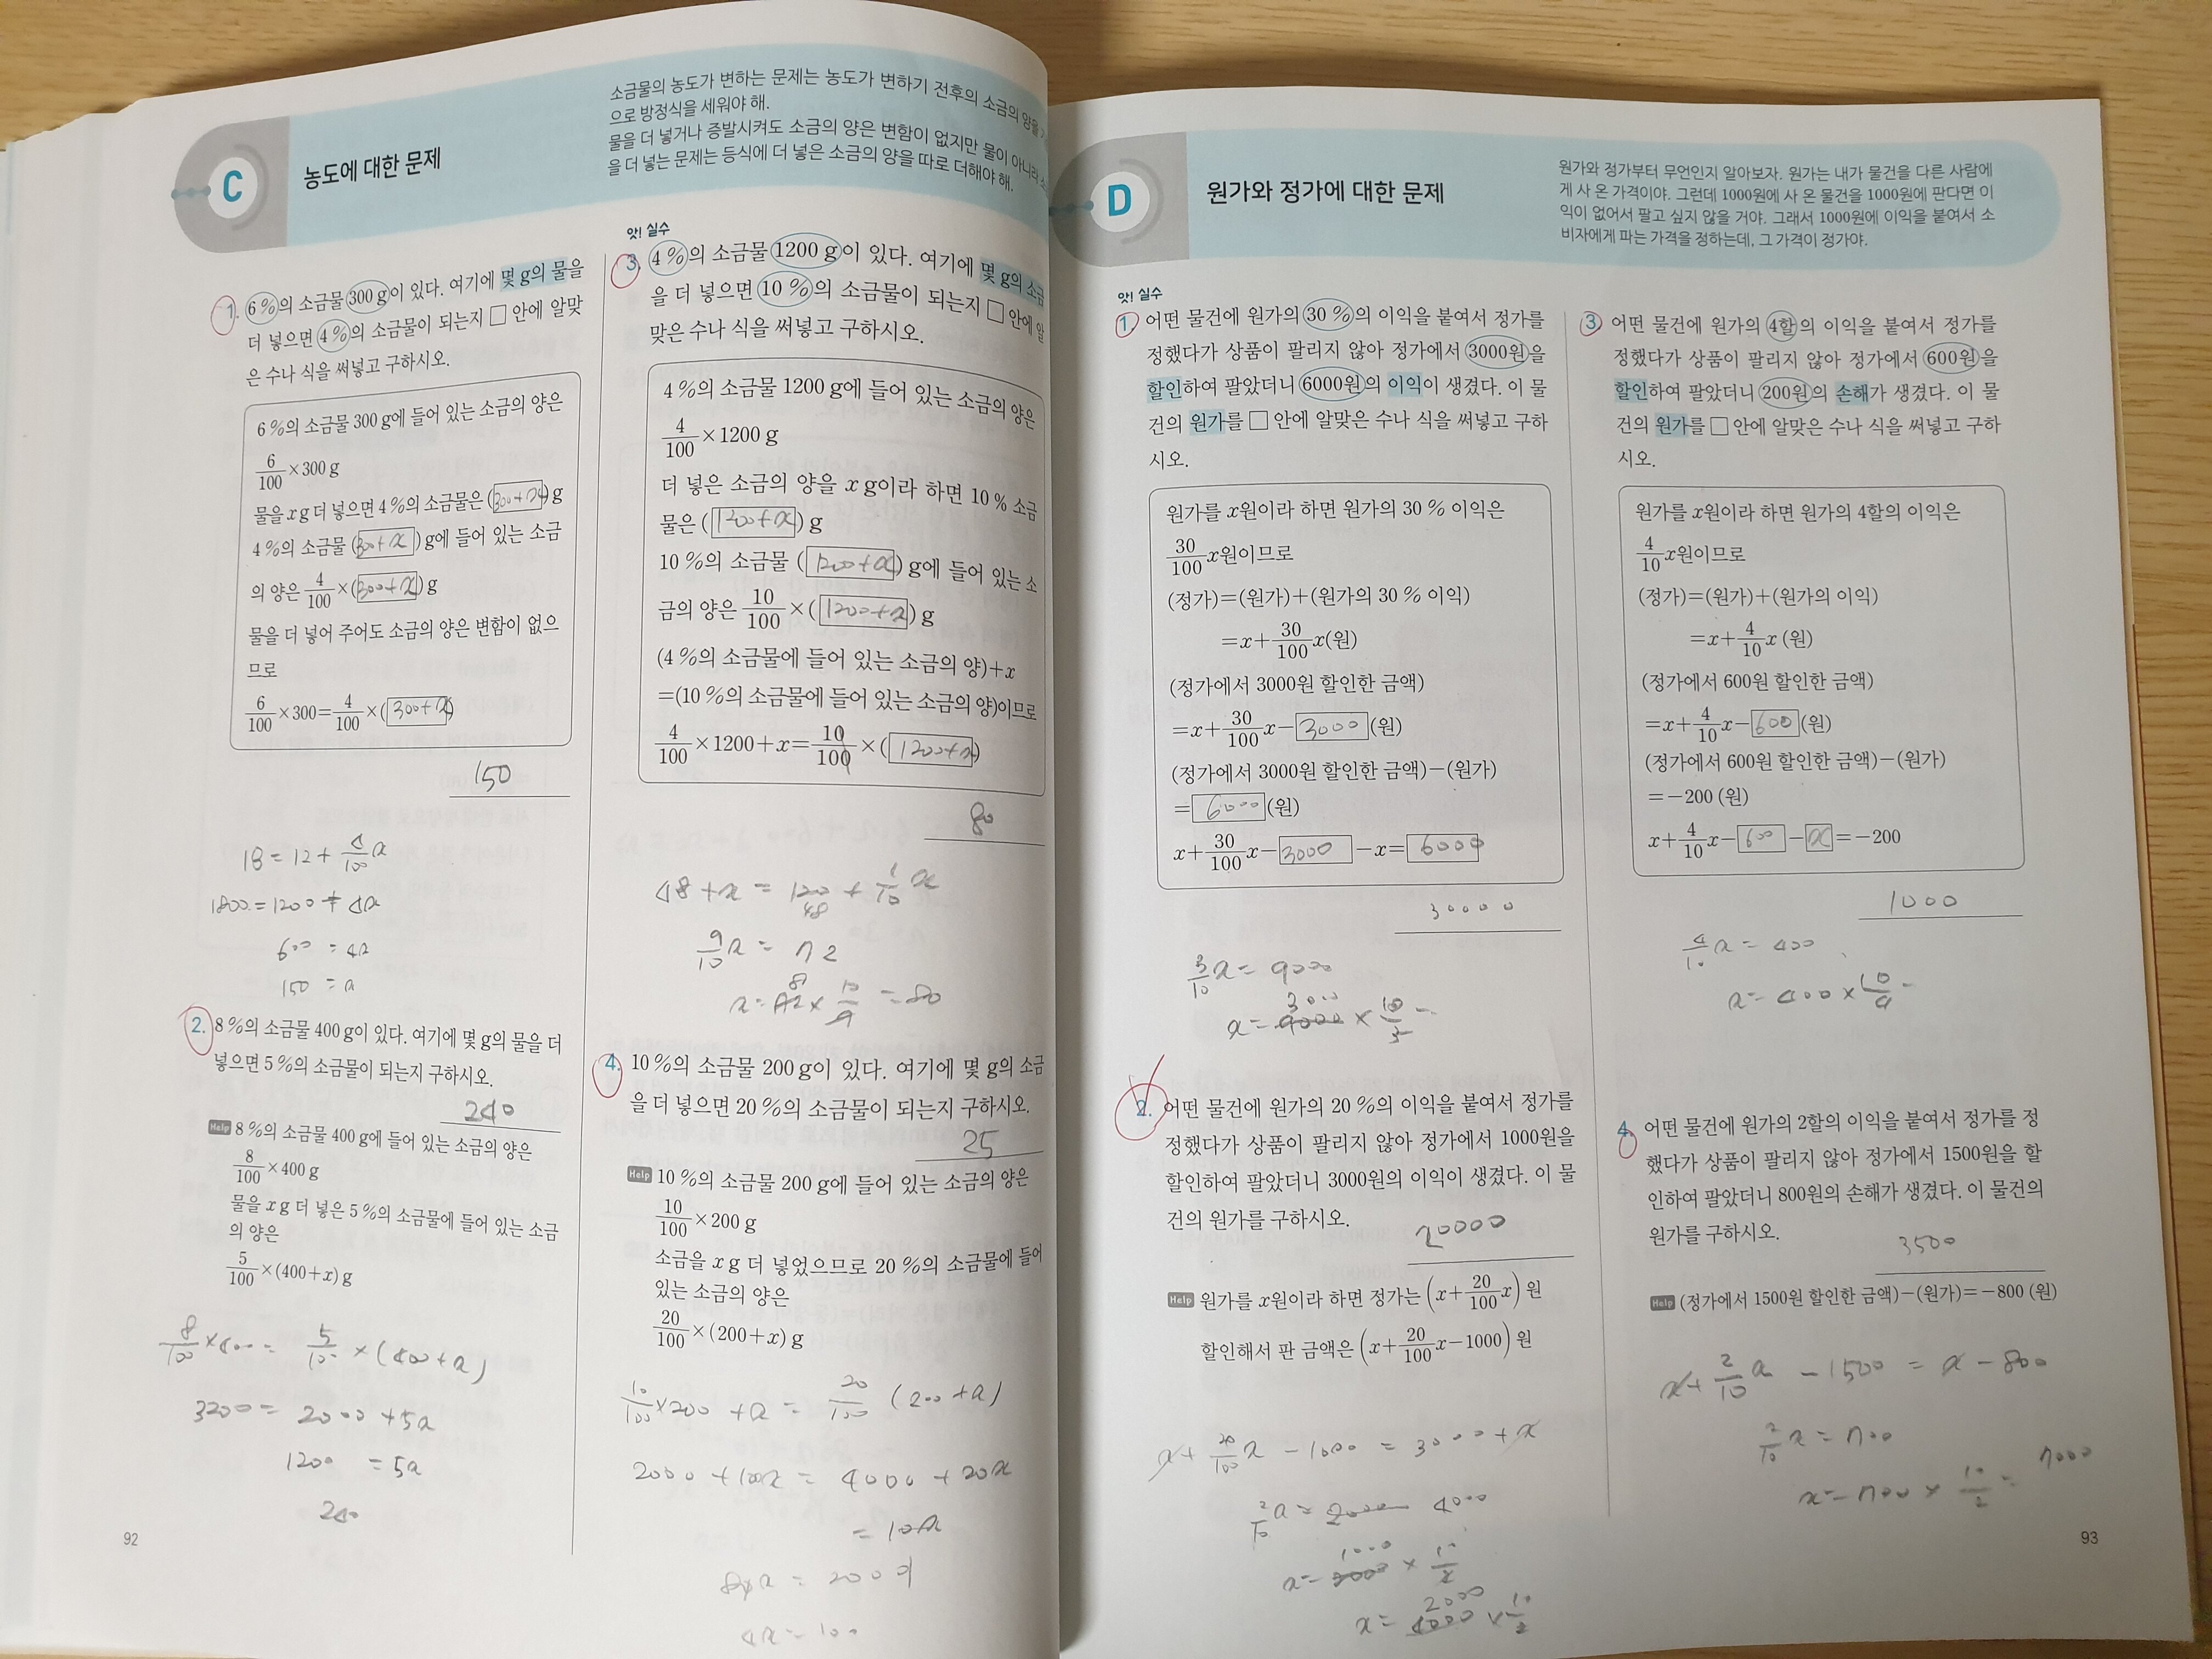 C
농도에 대한 문제
소금물의 농도가 변하는 문제는 농도가 변하기 전후의 소금의 양을
으로 방정식을 세워야 해.
물을 더 넣거나 증발시켜도 소금의 양은 변함이 없지만 물이 아니라 소
을 더 넣는 문제는 등식에 더 넣은 소금의 양을 따로 더해야 해.
1. 6 %의 소금물 300 g이 있다. 여기에 몇 g의 물을
더 넣으면 4 %의 소금물이 되는지 □ 안에 알맞
은 수나 식을 써넣고 구하시오.
6 %의 소금물 300 g에 들어 있는 소금의 양은
6/100×300 g
물을 x g 더 넣으면 4 %의 소금물은 (300+x) g
4 %의 소금물 (300+x) g에 들어 있는 소금
의 양은 4/100×(300+x) g
물을 더 넣어 주어도 소금의 양은 변함이 없으
므로
6/100×300=4/100×(300+x)
150
18 = 12 + 4/100 x
1800 = 1200 + 4x
600 = 4x
150 = x
2. 8 %의 소금물 400 g이 있다. 여기에 몇 g의 물을 더
넣으면 5 %의 소금물이 되는지 구하시오.
240
Help 8 %의 소금물 400 g에 들어 있는 소금의 양은
8/100×400 g
물을 x g 더 넣은 5 %의 소금물에 들어 있는 소금
의 양은
5/100×(400+x) g
8/100 × 400 = 5/100 × (400+x)
3200 = 2000 + 5x
1200 = 5x
240
92
앗! 실수
3. 4 %의 소금물 1200 g이 있다. 여기에 몇 g의 소금
을 더 넣으면 10 %의 소금물이 되는지 □ 안에 알
맞은 수나 식을 써넣고 구하시오.
4 %의 소금물 1200 g에 들어 있는 소금의 양은
4/100×1200 g
더 넣은 소금의 양을 x g이라 하면 10 % 소금
물은 (1200+x) g
10 %의 소금물 (1200+x) g에 들어 있는 소
금의 양은 10/100×(1200+x) g
(4 %의 소금물에 들어 있는 소금의 양)+x
=(10 %의 소금물에 들어 있는 소금의 양)이므로
4/100×1200+x=10/100×(1200+x)
80
48 + x = 120 + 1/10 x
48
9/10 x = 72
8
x = 72 × 10/9 = 80
4. 10 %의 소금물 200 g이 있다. 여기에 몇 g의 소금
을 더 넣으면 20 %의 소금물이 되는지 구하시오.
25
Help 10 %의 소금물 200 g에 들어 있는 소금의 양은
10/100×200 g
소금을 x g 더 넣었으므로 20 %의 소금물에 들어
있는 소금의 양은
20/100×(200+x) g
10/100×200 + x = 20/100 (200+x)
2000 + 100x = 4000 + 20x
4x = 100
D
원가와 정가에 대한 문제
원가와 정가부터 무언인지 알아보자. 원가는 내가 물건을 다른 사람에
게 사 온 가격이야. 그런데 1000원에 사 온 물건을 1000원에 판다면 이
익이 없어서 팔고 싶지 않을 거야. 그래서 1000원에 이익을 붙여서 소
비자에게 파는 가격을 정하는데, 그 가격이 정가야.
앗! 실수
1. 어떤 물건에 원가의 30 %의 이익을 붙여서 정가를
정했다가 상품이 팔리지 않아 정가에서 3000원을
할인하여 팔았더니 6000원의 이익이 생겼다. 이 물
건의 원가를 □ 안에 알맞은 수나 식을 써넣고 구하
시오.
원가를 x원이라 하면 원가의 30 % 이익은
30/100 x원이므로
(정가)=(원가)+(원가의 30 % 이익)
=x+30/100 x(원)
(정가에서 3000원 할인한 금액)
=x+30/100 x-3000(원)
(정가에서 3000원 할인한 금액)-(원가)
=6000(원)
x+30/100 x-3000-x=6000
30000
3/10 x = 9000
3000
x = 9000 × 10/3 =
2. 어떤 물건에 원가의 20 %의 이익을 붙여서 정가를
정했다가 상품이 팔리지 않아 정가에서 1000원을
할인하여 팔았더니 3000원의 이익이 생겼다. 이 물
건의 원가를 구하시오.
20000
Help 원가를 x원이라 하면 정가는 (x+20/100 x) 원
할인해서 판 금액은 (x+20/100 x-1000) 원
x + 20/100 x - 1000 = 3000 + x
2/10 x = 4000
1000
x = 2000 × 10/2
2000
x = 4000 × 10/2
3. 어떤 물건에 원가의 4할의 이익을 붙여서 정가를
정했다가 상품이 팔리지 않아 정가에서 600원을
할인하여 팔았더니 200원의 손해가 생겼다. 이 물
건의 원가를 □ 안에 알맞은 수나 식을 써넣고 구하
시오.
원가를 x원이라 하면 원가의 4할의 이익은
4/10 x원이므로
(정가)=(원가)+(원가의 이익)
=x+4/10 x (원)
(정가에서 600원 할인한 금액)
=x+4/10 x-600(원)
(정가에서 600원 할인한 금액)-(원가)
=-200 (원)
x+4/10 x-600-x=-200
1000
4/10 x = 400
x = 400 × 10/4 =
4. 어떤 물건에 원가의 2할의 이익을 붙여서 정가를 정
했다가 상품이 팔리지 않아 정가에서 1500원을 할
인하여 팔았더니 800원의 손해가 생겼다. 이 물건의
원가를 구하시오.
3500
Help (정가에서 1500원 할인한 금액)-(원가)=-800 (원)
x + 2/10 x - 1500 = x - 800
2/10 x = 700
x = 700 × 10/2 = 7000
93